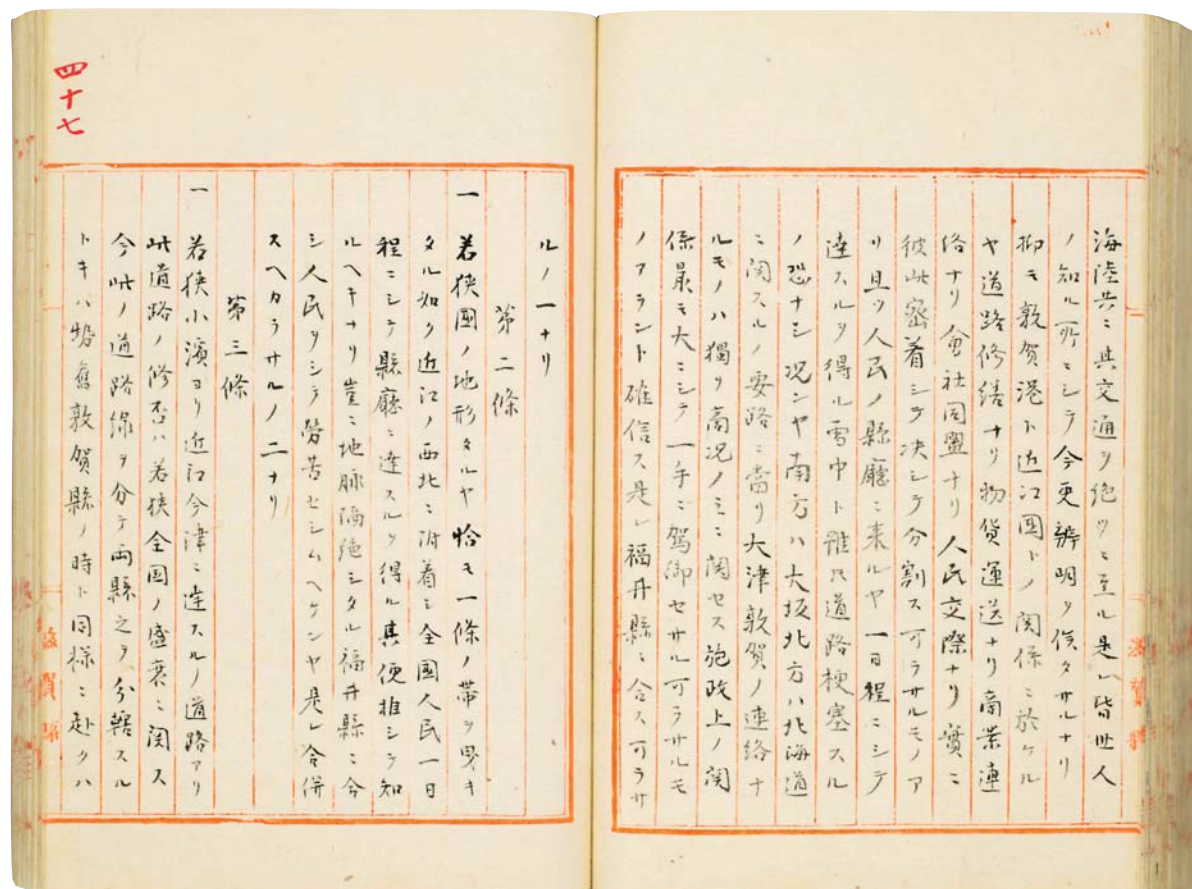 海陸共ニ其交通ヲ絶ツニ至ル是レ皆世人
ノ知ル所ニシテ今更辨明ヲ俟タサルナリ
抑モ敦賀港ト近江國トノ関係ニ於ケル
ヤ道路修繕ナリ物貨運送ナリ商業連
絡ナリ會社同盟ナリ人民交際ナリ實ニ
彼此密着シテ决シテ分割ス可ラサルモノア
リ且ツ人民ノ縣廳ニ来ルヤ一日程ニシテ
達スルヲ得ル雪中ト雖𪜈道路梗塞スル
ノ恐ナシ况ンヤ南方ハ大坂北方ハ北海道
ニ関スルノ要路ニ當リ大津敦賀ノ連絡ナ
ルモノハ獨リ商况ノミニ関セス施政上ノ関
係最モ大ニシテ一手ニ駕御セサル可ラサルモ
ノアラント確信ス是レ福井縣ニ合ス可ラサ
ルノ一ナリ
第二條
一 若狭國ノ地形タルヤ恰モ一條ノ帯ヲ曳キ
タル如ク近江ノ西北ニ附着シ全国人民一日
程ニシテ縣廳ニ達スルヲ得ル其便推シテ知
ルヘキナリ豈ニ地脉隔絶シタル福井縣ニ合
シ人民ヲシテ労苦セシムヘケンヤ是レ合併
スヘカラサルノ二ナリ
第三條
一 若狭小濱ヨリ近江今津ニ達スルノ道路アリ
此道路ノ修否ハ若狭全国ノ盛衰ニ関ス
今此ノ道路線ヲ分テ両縣之ヲ分轄スル
トキハ勢舊敦賀縣ノ時ト同様ニ赴クハ
四十七
滋賀縣
滋賀縣